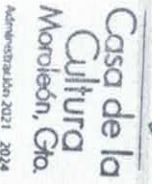 Casa de la
Cultura
Moroleón, Gto.
Administración 2021 2024